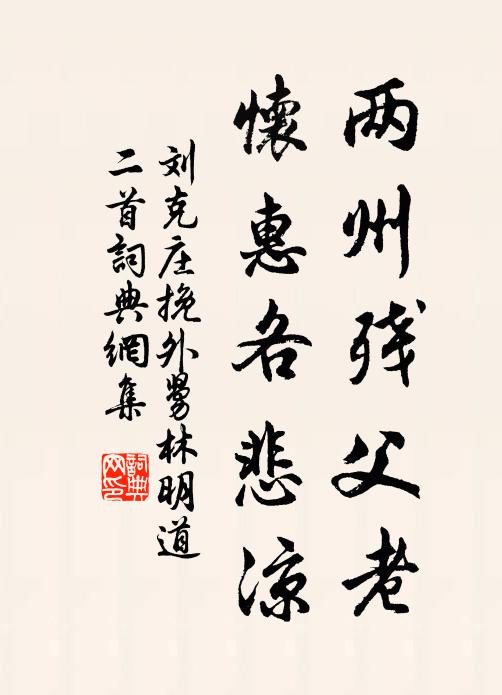 两州残父老
懷惠各悲涼
刘克庄挽外舅林明道
二首詞典網集
詞典网印